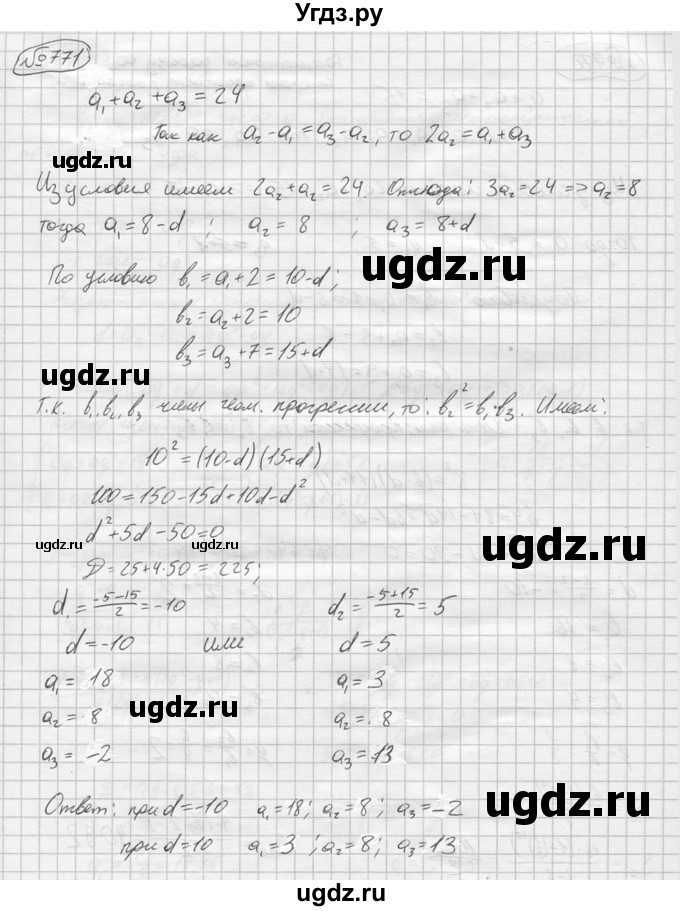 Угдз.ру
№771
a₁+a₂+a₃=24
Так как a₂-a₁=a₃-a₂, то 2a₂=a₁+a₃
ugdz.ru ugdz.ru
Из условия имеем 2a₂+a₂=24. Отсюда: 3a₂=24=>a₂=8
тогда a₁=8-d ; a₂=8 ; a₃=8+d
По условию b₁=a₁+2=10-d;
ugdz.ru
b₂=a₂+2=10
b₃=a₃+7=15+d
ugdz.ru
Т.к. b₁,b₂,b₃ члены геом. прогрессии, то: b₂²=b₁·b₃. Имеем:
10²=(10-d)(15+d)
100=150-15d+10d-d²
d²+5d-50=0
ugdz.ru ugdz.ru ugdz.ru
D=25+4·50=225;
d₁=(-5-15)/2=-10 d₂=(-5+15)/2=5
d=-10 или d=5
a₁=18 a₁=3
ugdz.ru
a₂=8 a₂=8
a₃=-2 a₃=13
Ответ: при d=-10 a₁=18; a₂=8; a₃=-2
ugdz.ru
при d=10 a₁=3; a₂=8; a₃=13
ugdz.ru